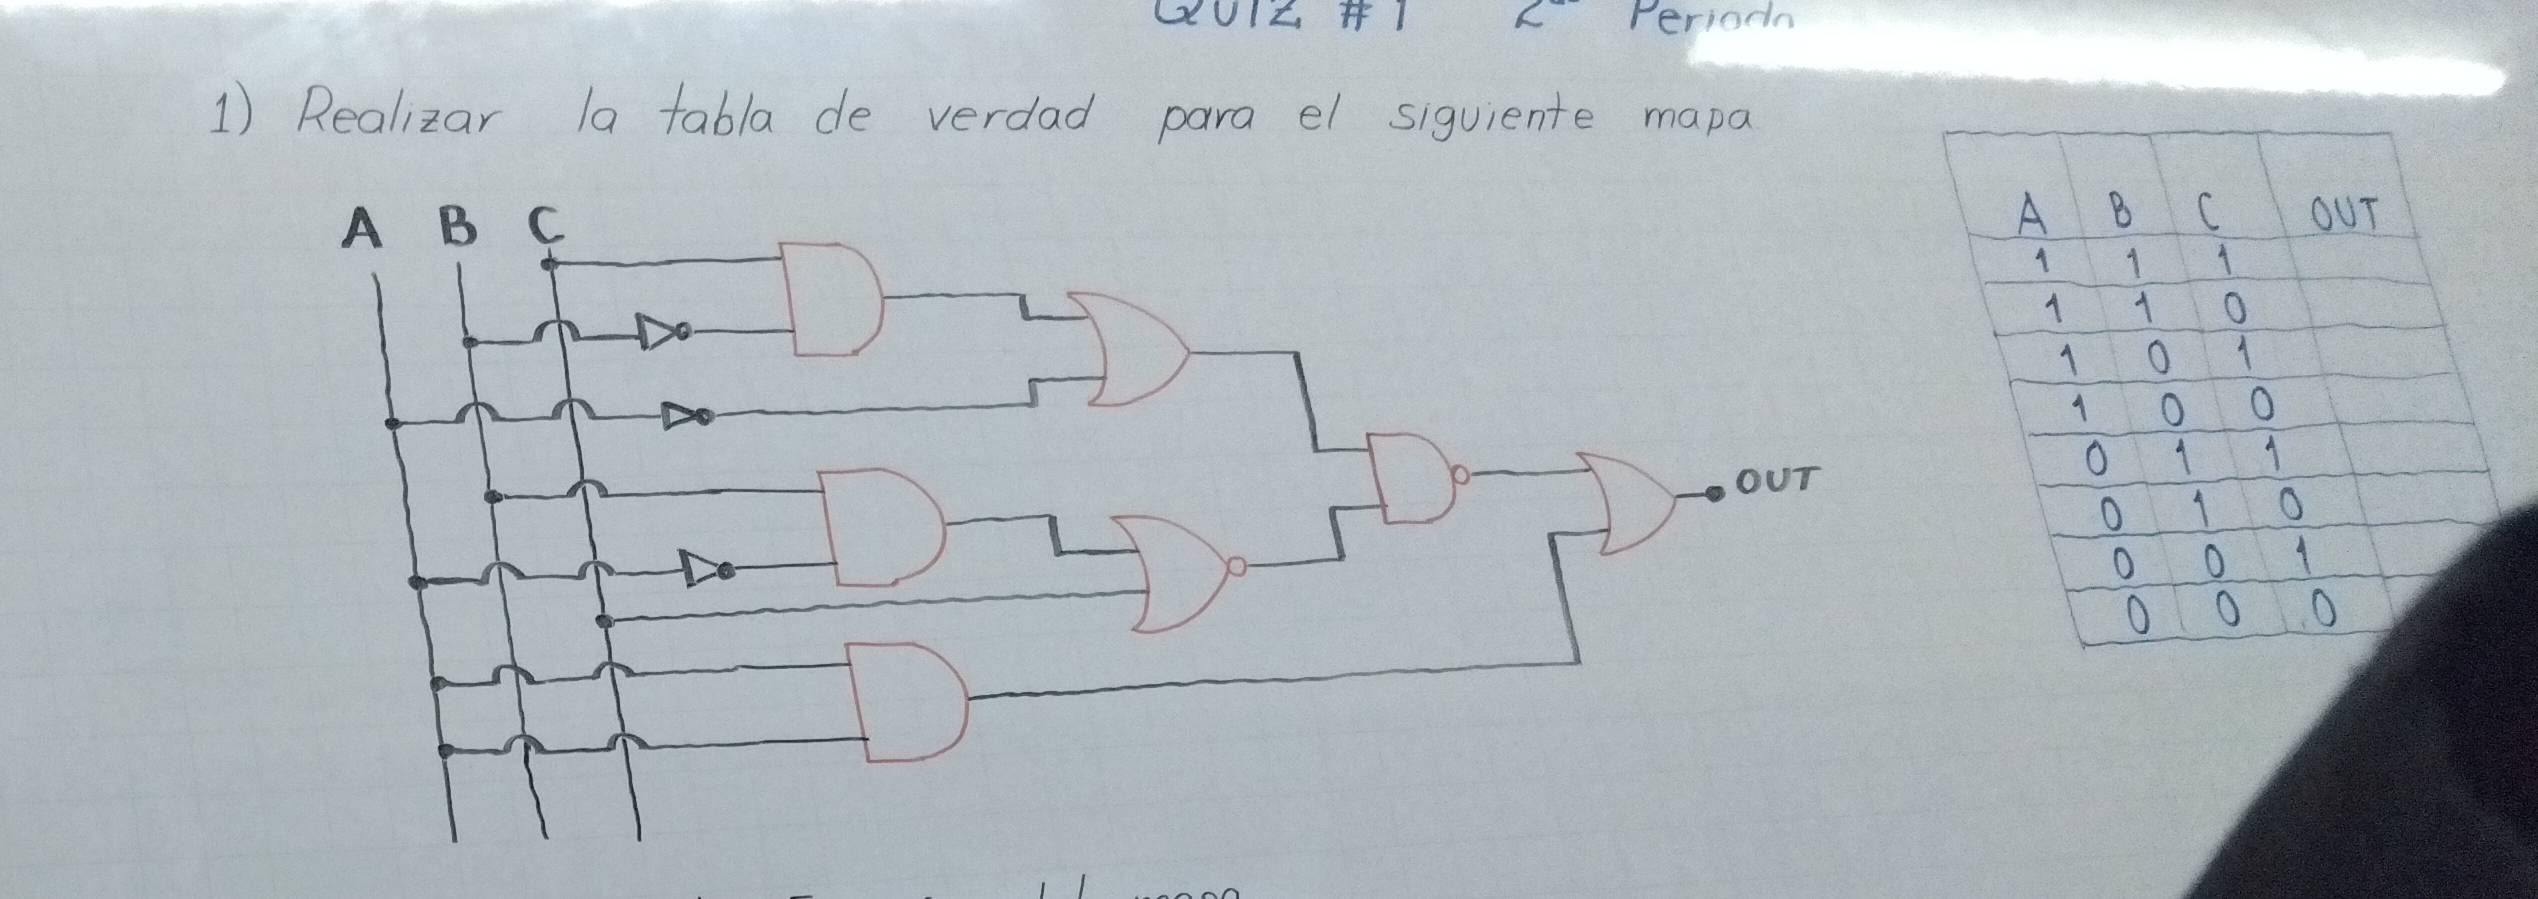 QUIZ #1 2do Periodo
1) Realizar la tabla de verdad para el siguiente mapa
A B C
OUT
A B C OUT
1 1 1
1 1 0
1 0 1
1 0 0
0 1 1
0 1 0
0 0 1
0 0 0
mapa